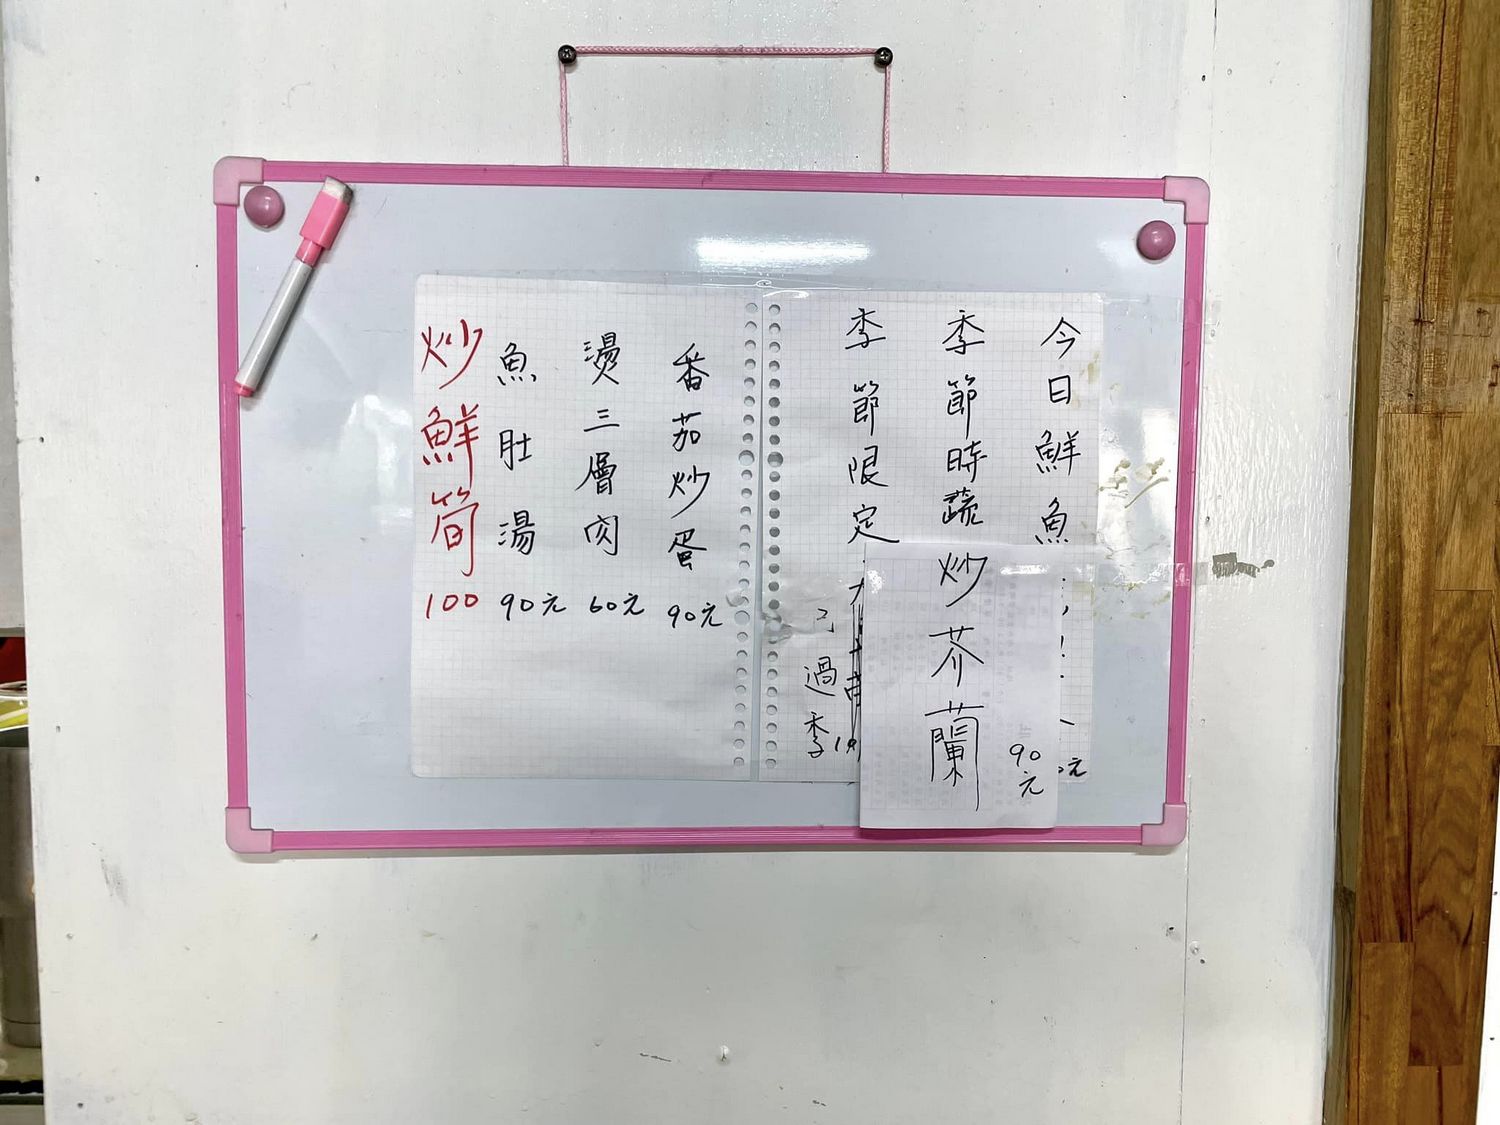 今日鮮魚
元
季節時蔬
炒芥蘭
90元
季節限定
過季
番茄炒蛋 90元
燙三層肉 60元
魚肚湯 90元
炒鮮筍 100